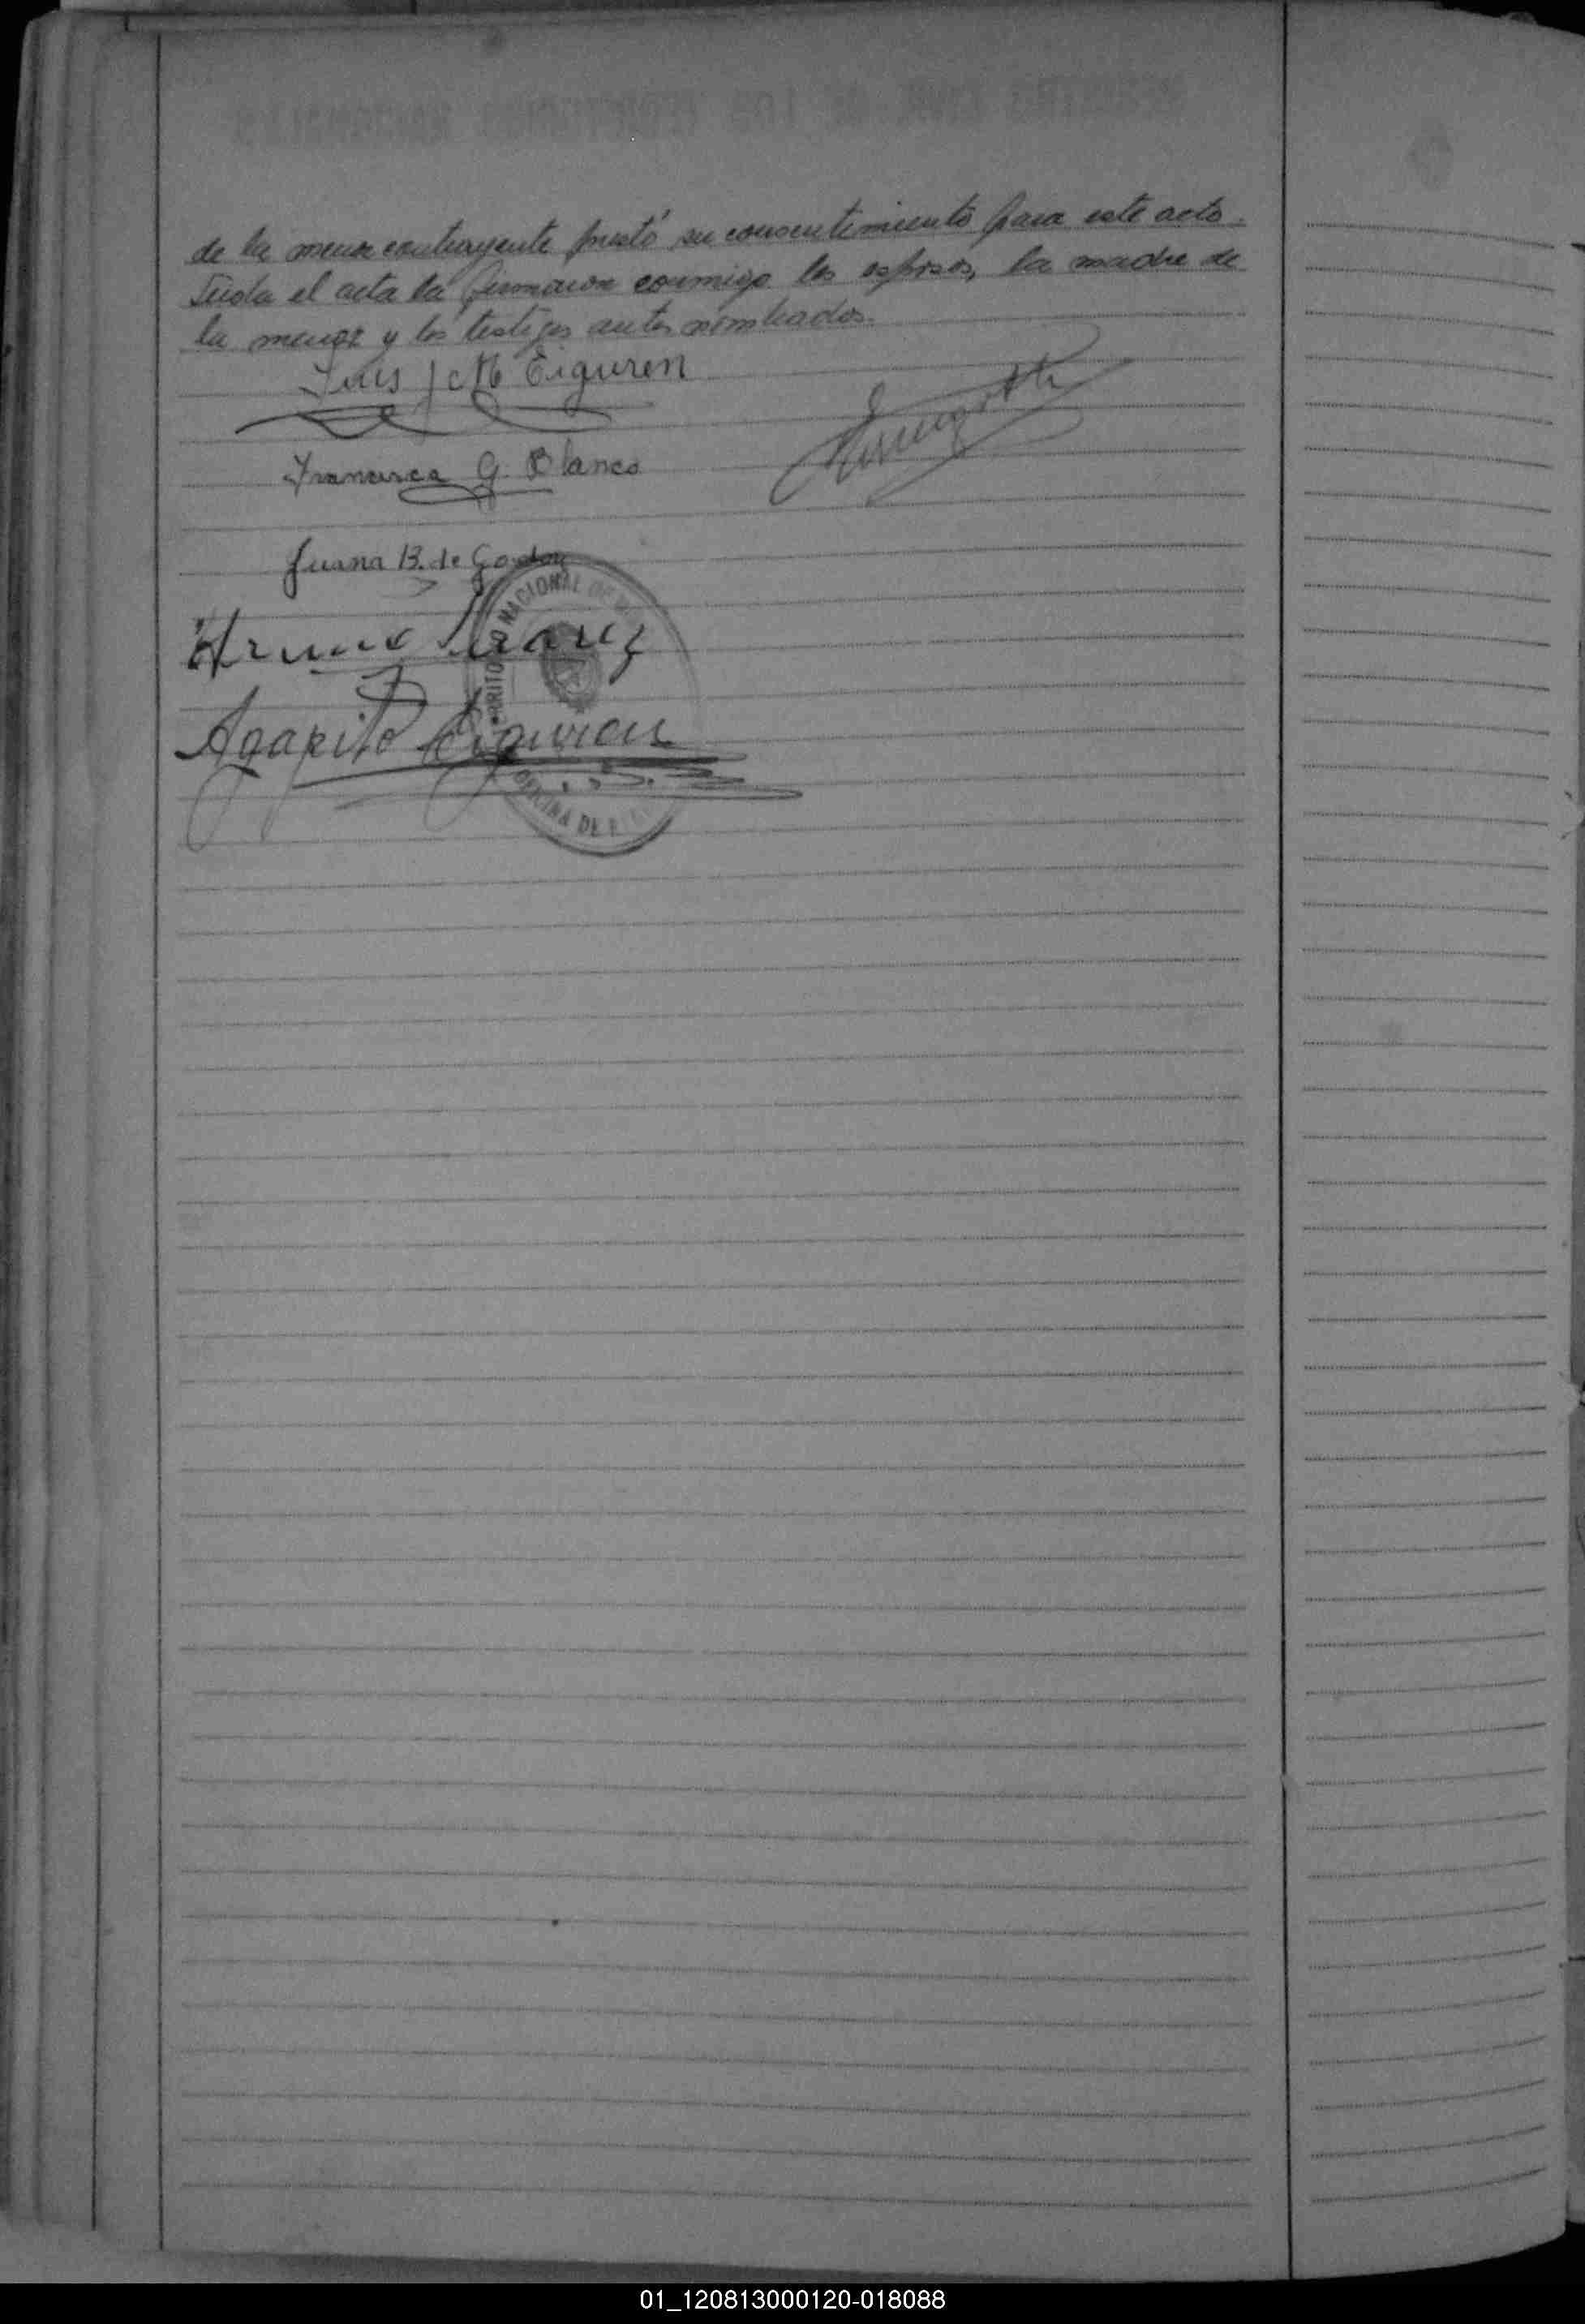 de la menor contrayente prestó su consentimiento para este acto.
Leída el acta la firmaron conmigo los esposos, la madre de
la menor y los testigos antes nombrados.
Luis J M Eiguren
Francisca G. Blanco
Juana B. de Godoy
NACIONAL DE
Suarez
Agapito Eiguren
OFICINA DE
01_120813000120-018088